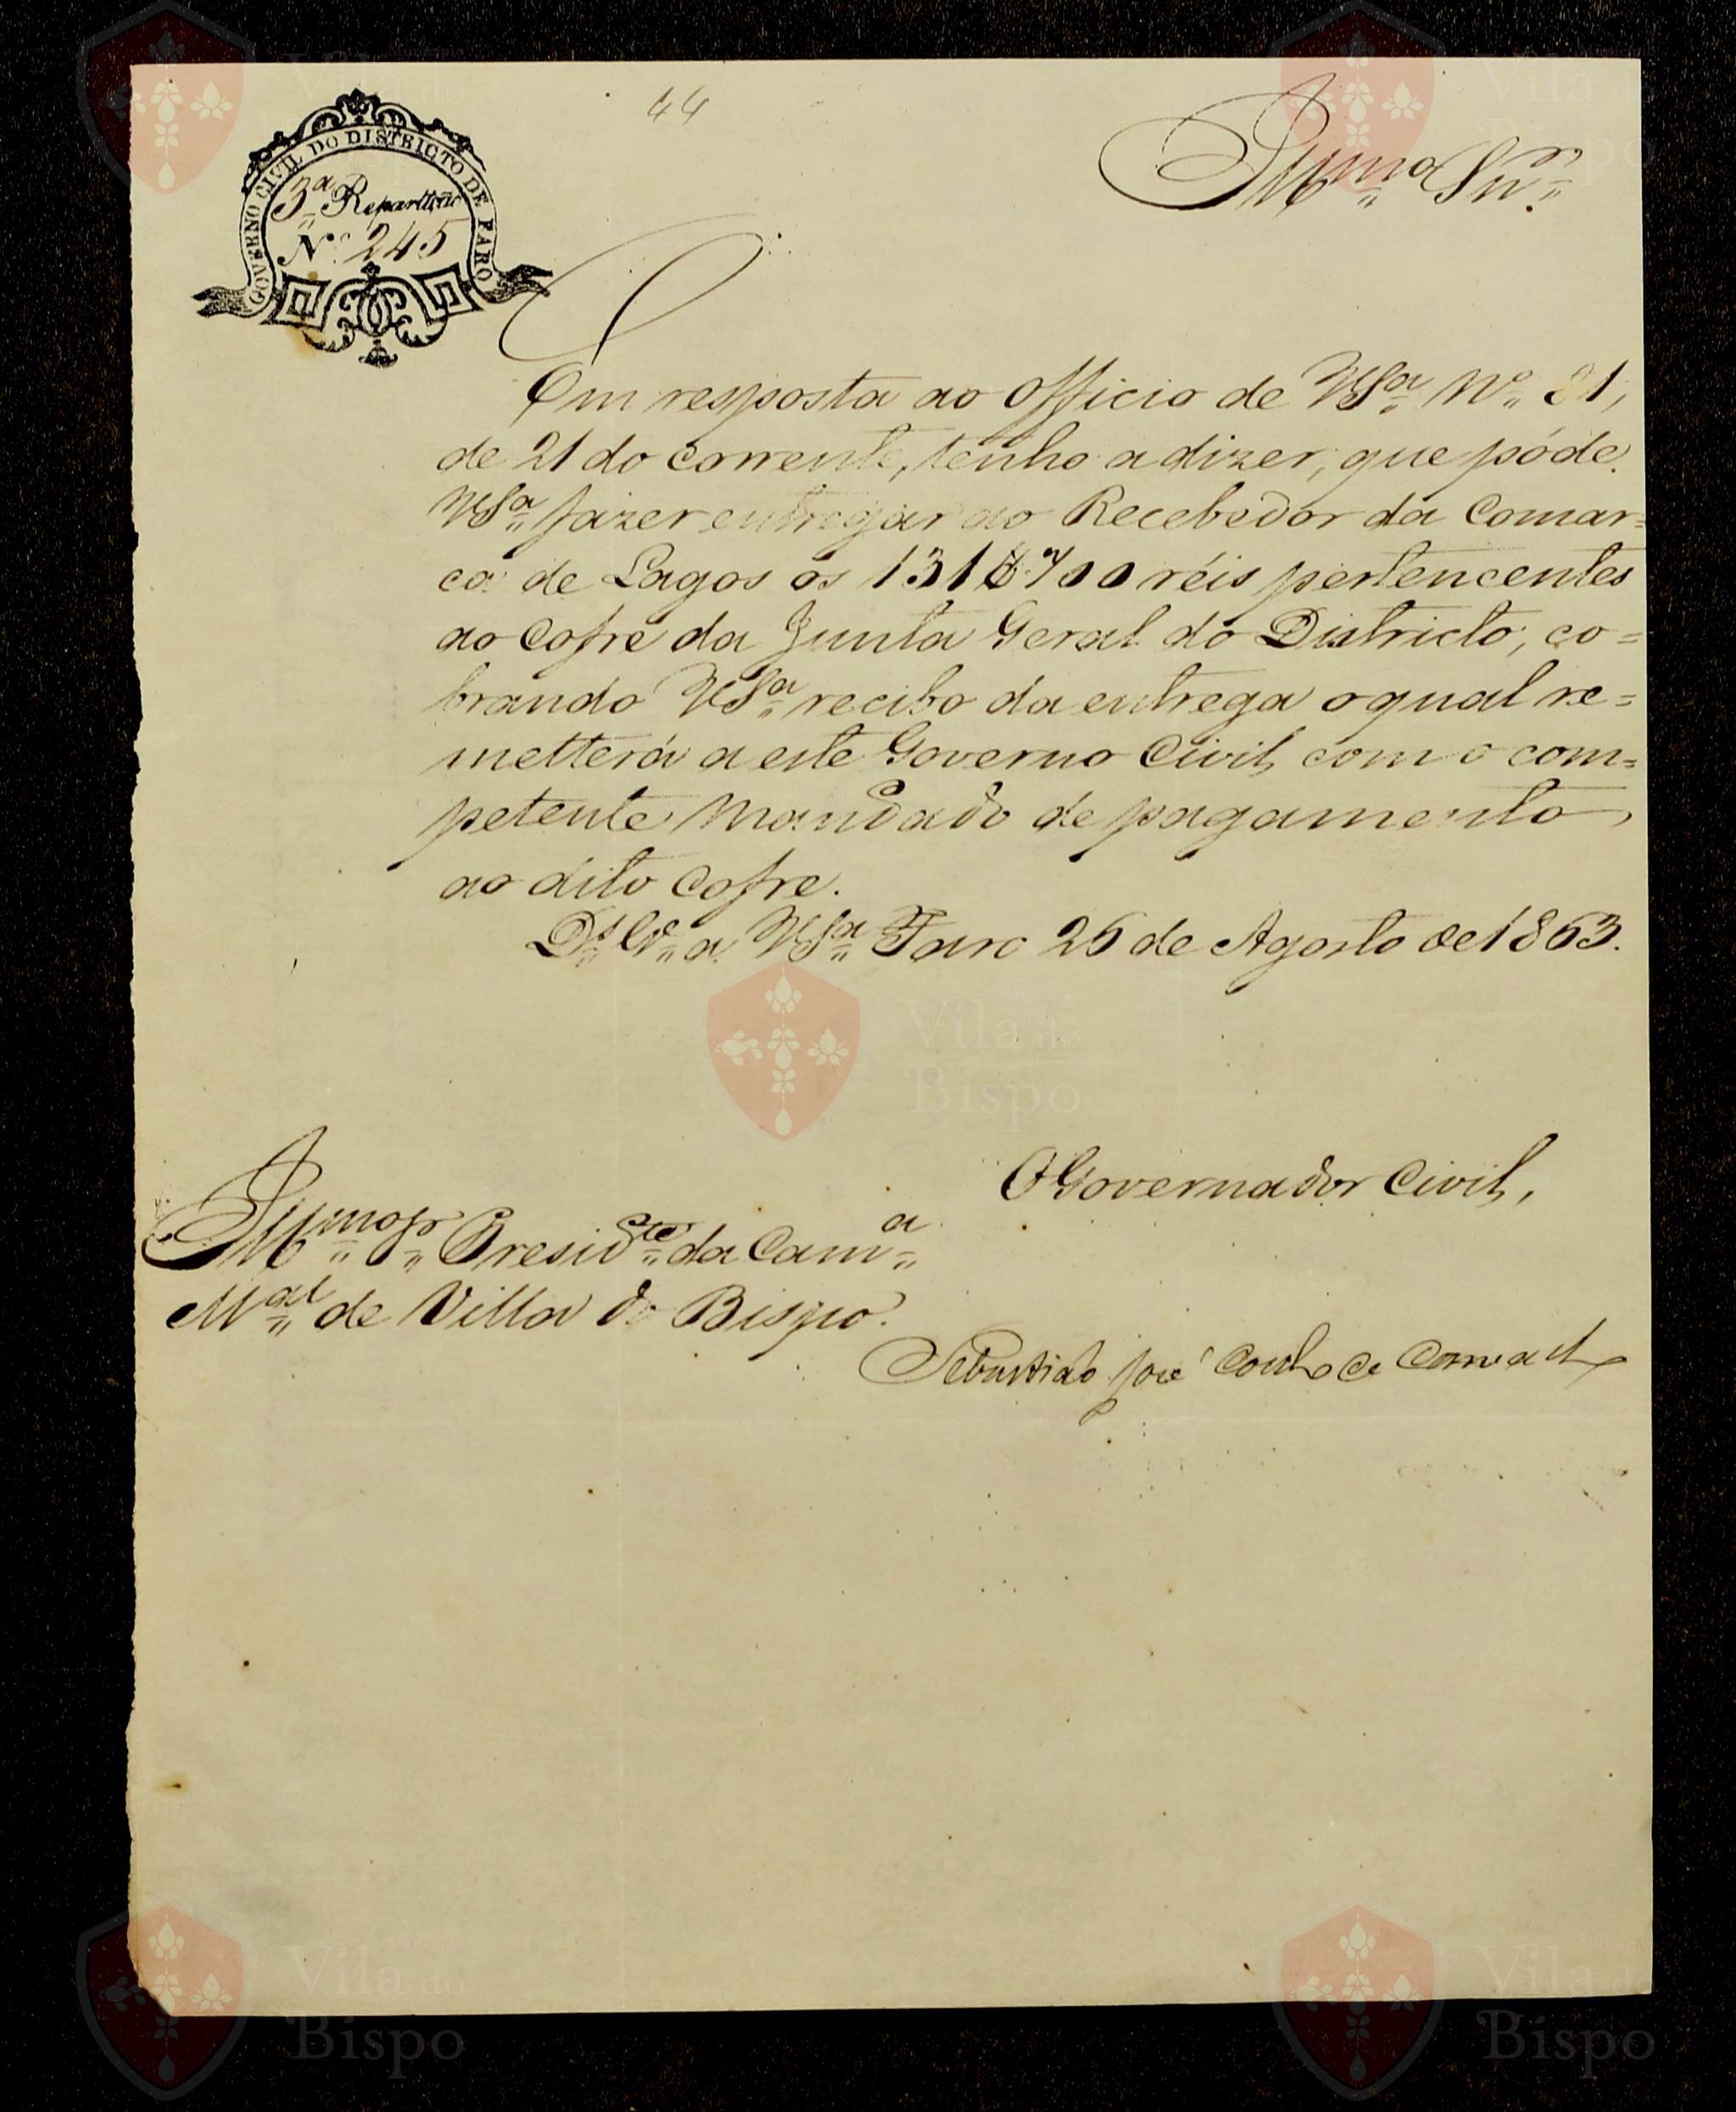 44
GOVERNO CIVIL DO DISTRICTO DE FARO
3ª Repartição
Nº 245
Illmo Snr.
Em resposta ao Officio de VSª Nº 21,
de 21 do corrente, tenho a dizer, que póde
VSª fazer entregar ao Recebedor da Comar=
ca de Lagos os 131$700 réis pertencentes
ao Cofre da Junta Geral do Districto, co=
brando VSª recibo da entrega o qual re=
metterá a este Governo Civil, com o com=
petente Mandado de pagamento
ao dito Cofre.
Ds Gde a VSª Faro 26 de Agosto de 1863.
O Governador Civil,
Illmo Sr Presidte da Camª
Mal de Villa do Bispo.
Sebastião José Coelho de Carvalho
Vila do
Bispo